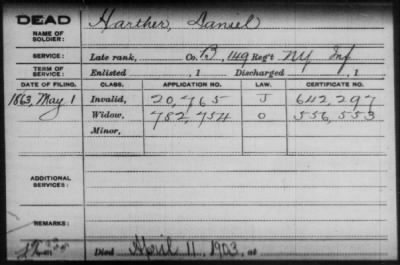 DEAD
NAME OF SOLDIER: Harther, Daniel
SERVICE: Late rank, Co. B, 149 Reg't NY Inf
TERM OF SERVICE: Enlisted , 1 Discharged , 1
DATE OF FILING. CLASS. APPLICATION NO. LAW. CERTIFICATE NO.
1863, May 1 Invalid, 20,765 J 642,297
Widow, 782,754 O 556,553
Minor,
ADDITIONAL SERVICES:
REMARKS:
Died April 11, 1903, at